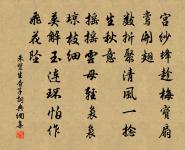 宮紗蜂趁梅寶扇
鸞開翅
數折聚清風一捻
生秋意
搖搖雲母輕裊裊
瓊枝細
莫解玉連環怕作
飛花墜
朱翌生查子詞典網集